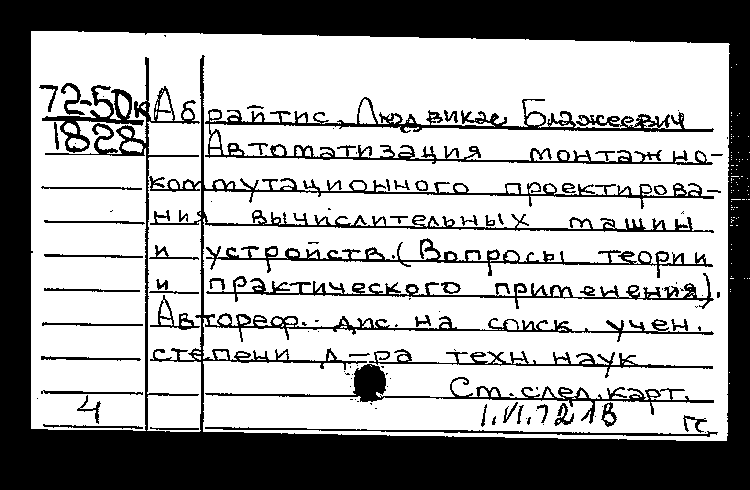 72-50к
1828
Абрайтис, Людвикас Блажеевич
Автоматизация монтажно-
коммутационного проектирова-
ния вычислительных машин
и устройств. (Вопросы теории
и практического применения).
Автореф. дис. на соиск. учен.
степени д-ра техн. наук
См. след. карт.
4
1.VI.72 1В
гс